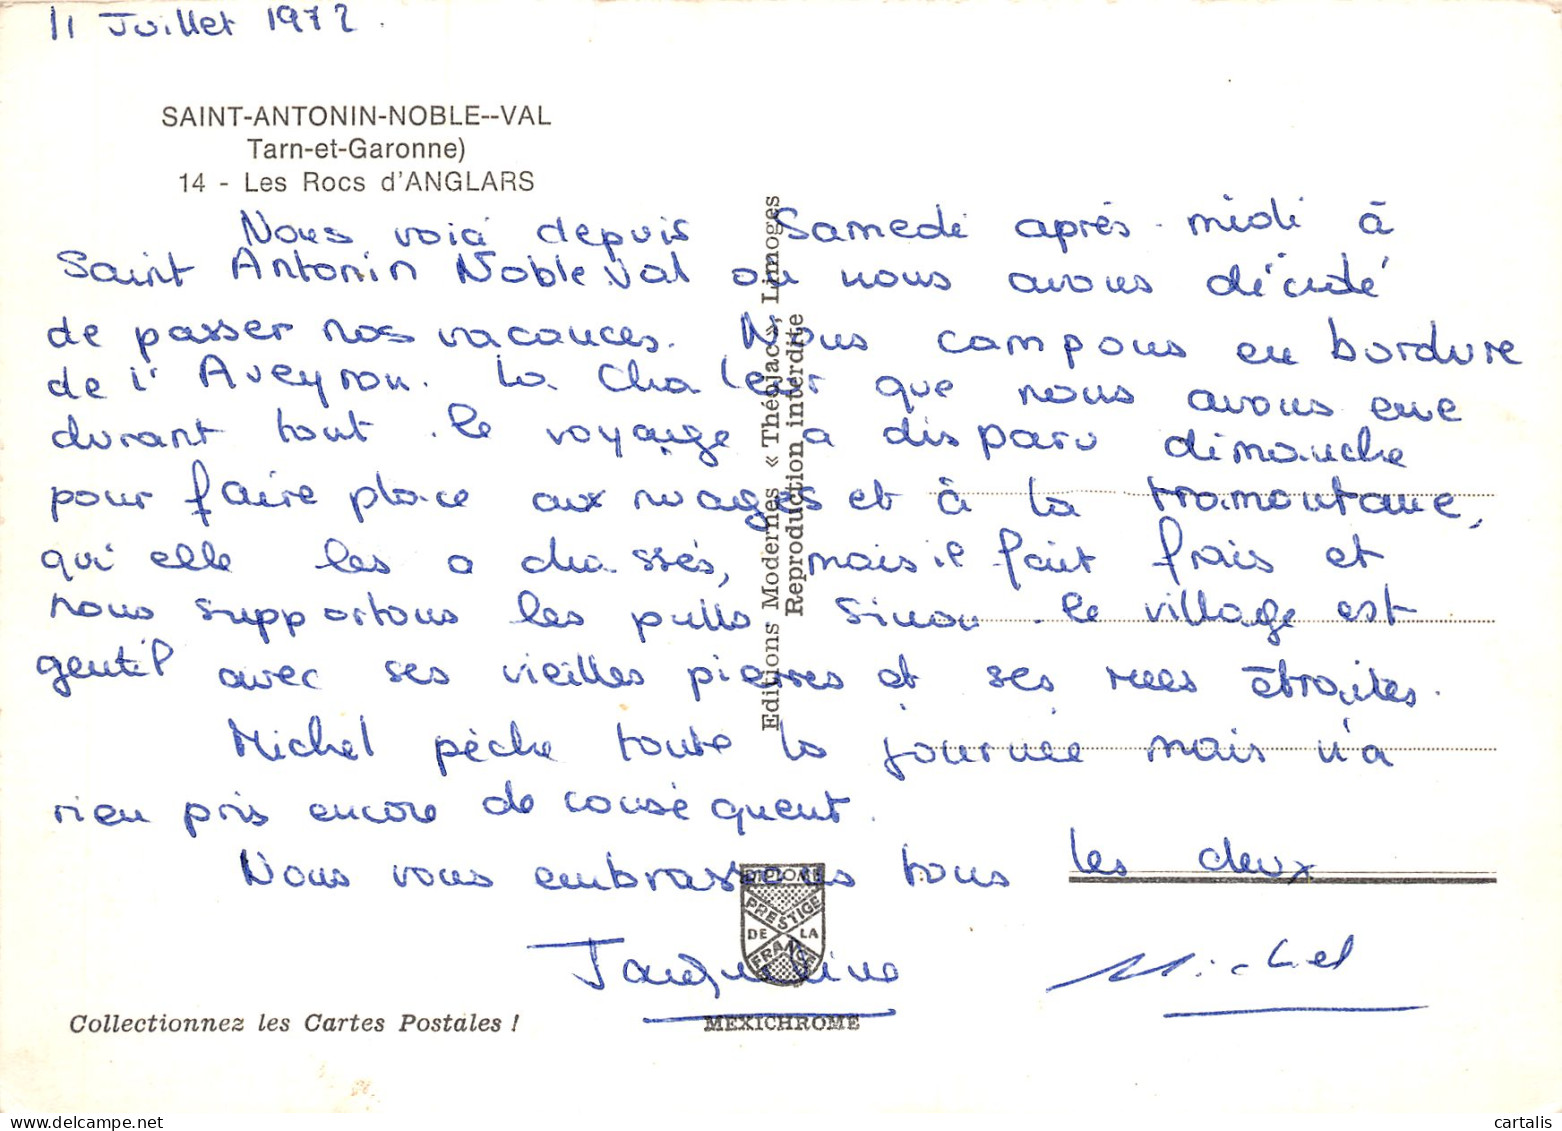 11 Juillet 1972.
SAINT-ANTONIN-NOBLE--VAL
Tarn-et-Garonne)
14 - Les Rocs d'ANGLARS
Nous voici depuis Samedi après-midi à
Saint Antonin Noble Val où nous avons décidé
de passer nos vacances. Nous campons en bordure
de l'Aveyron. La chaleur que nous avons eue
durant tout le voyage a disparu dimanche
pour faire place aux nuages et à la tramontane,
qui elle les a chassés, mais il fait frais et
nous supportons les pulls sinon. Le village est
gentil avec ses vieilles pierres et ses rues étroites.
Michel pèche toute la journée mais n'a
rien pris encore de conséquent.
Nous vous embrassons tous les deux
Jacqueline Michel
Editions Modernes « Théojac », Limoges
Reproduction interdite
DIPLOME
PRESTIGE
DE LA
FRANCE
MEXICHROME
Collectionnez les Cartes Postales !
cartalis